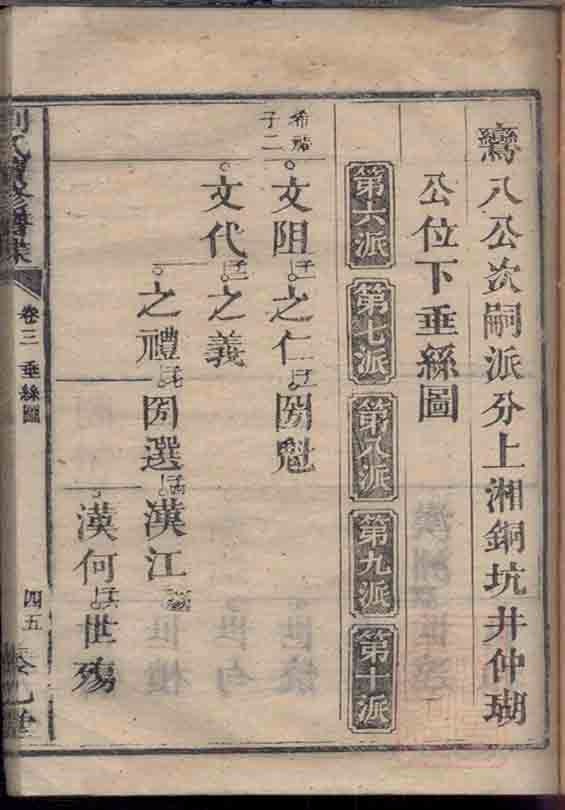 鸞八公次嗣派分上湘銅坑井仲瑚
公位下垂絲圖
第六派
第七派
第八派
第九派
第十派
子二
文阻
之仁
圀魁
文代
之義
之禮
圀選
漢江
漢何
世殤
氏續修譜
卷三
垂絲圖
四五
堂